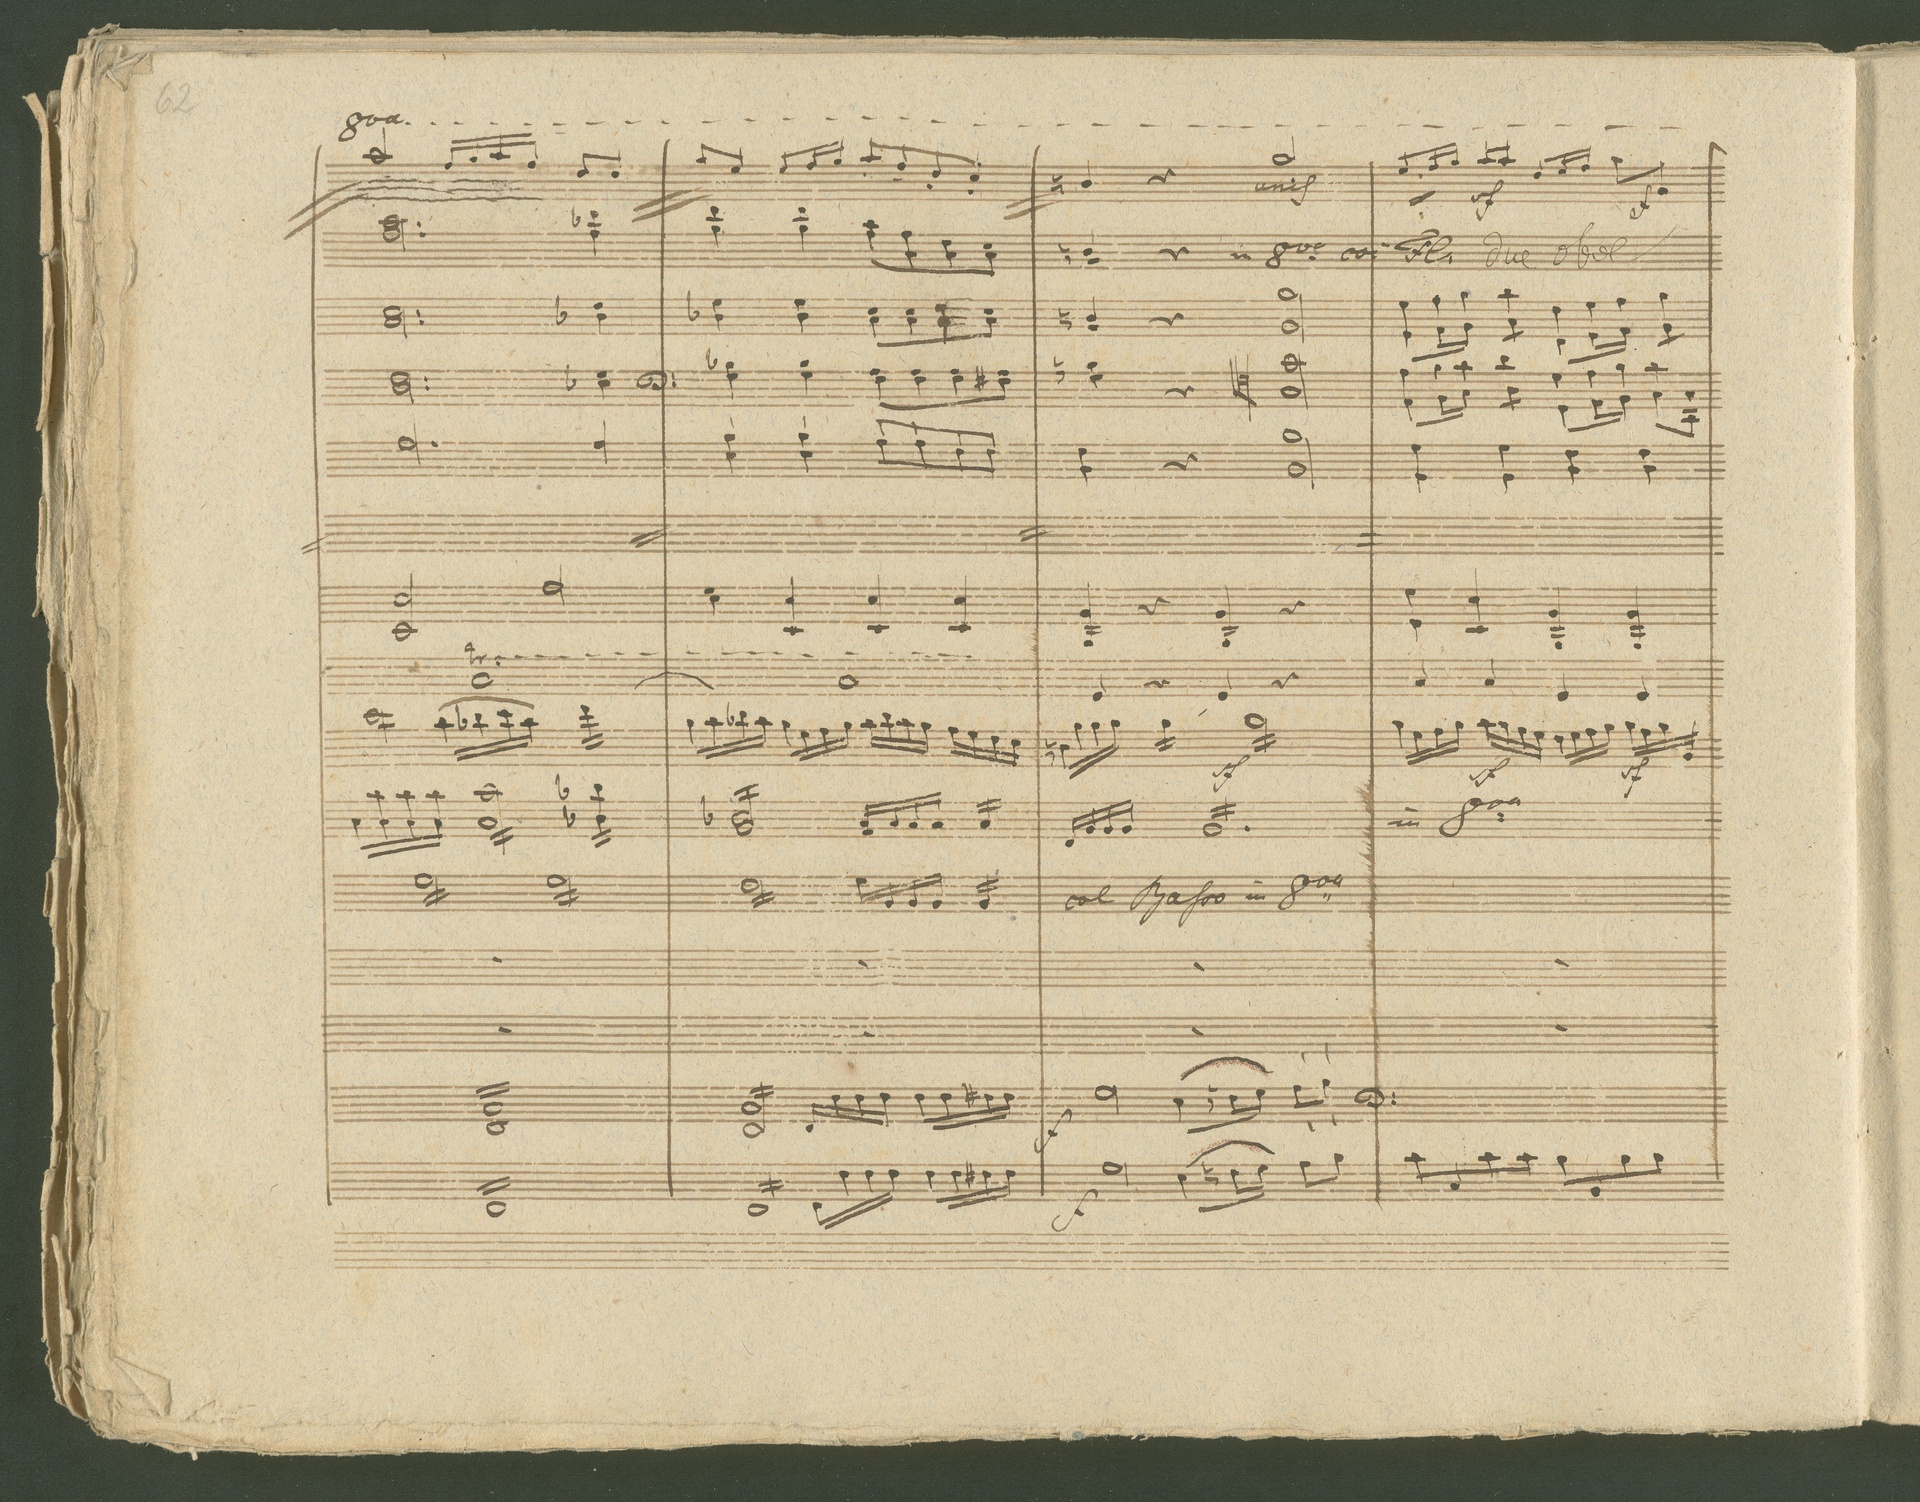 62
8va
unis
sf
sf
in 8va co: Fl. due oboe
tr
sf
sf
sf
in 8va
col Basso in 8va
f
f